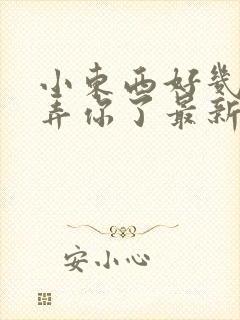 小东西好几
弄你了最新
安小心